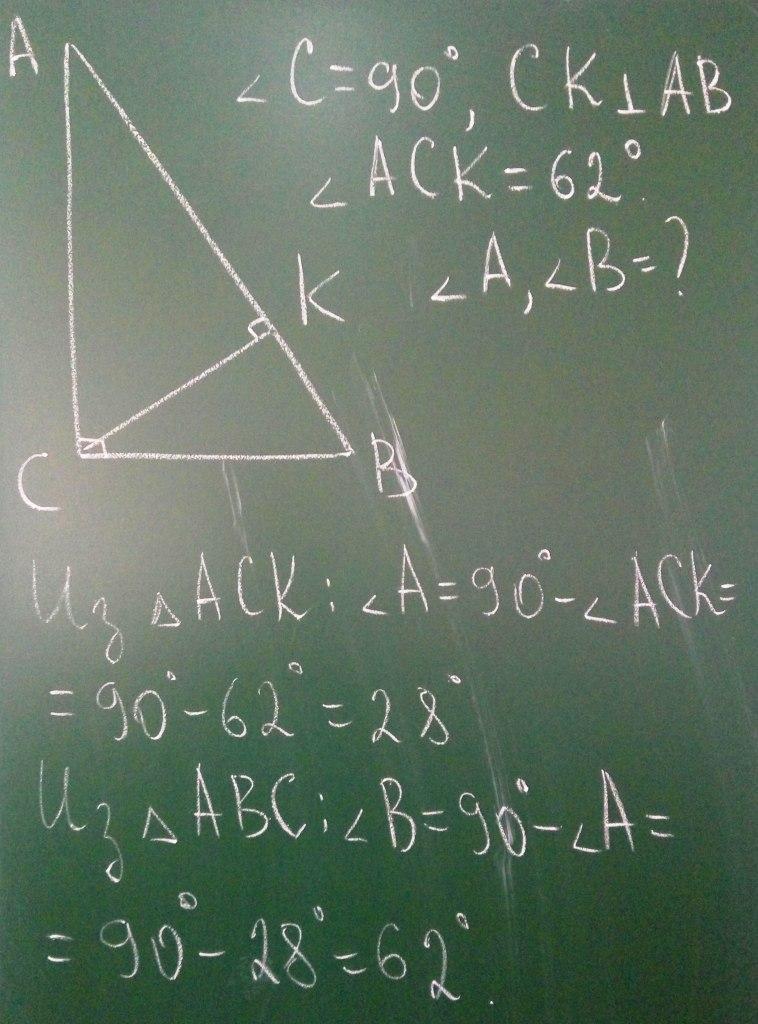 A
∠C=90°, CK⊥AB
∠ACK=62°.
∠A, ∠B=?
K
C
B
Из △ACK: ∠A=90°-∠ACK=
=90°-62°=28°
Из △ABC: ∠B=90°-∠A=
=90°-28°=62°.